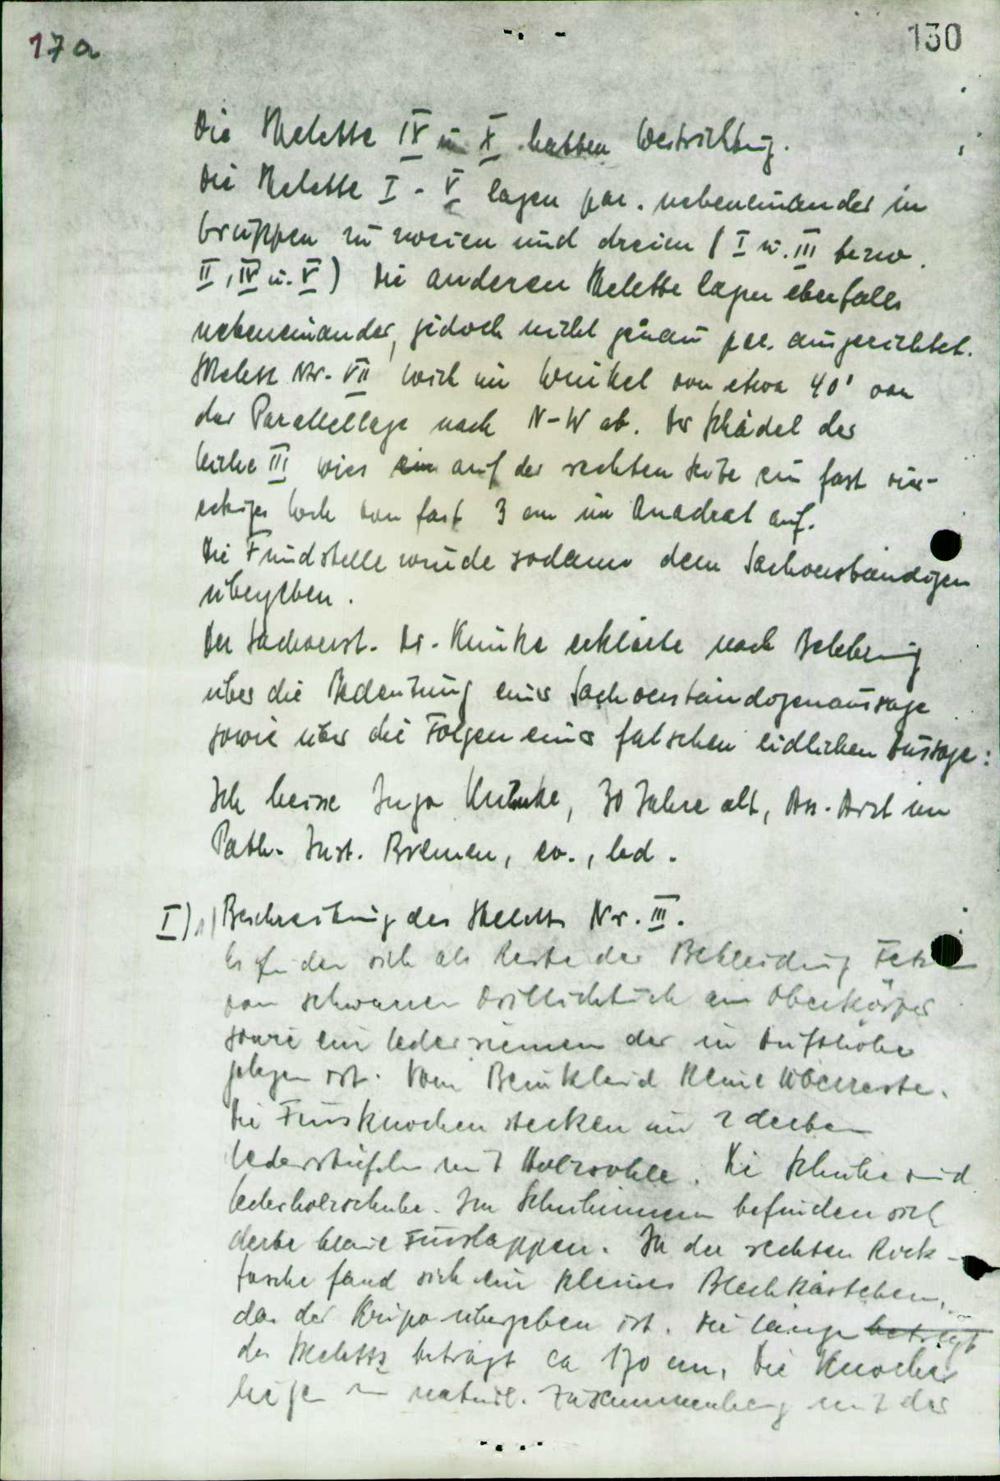 17a
130
Die Skelette IV u X hatten Westrichtung.
Die Skelette I - V lagen par. nebeneinander in
Gruppen zu zweien und dreien (I u. III bezw.
II, IV u. V) Die anderen Skelette lagen ebenfalls
nebeneinander, jedoch nicht genau par. ausgerichtet.
Skelett Nr. VII wich im Winkel von etwa 40° von
der Parallellage nach N-W ab. Der Schädel der
Leiche III wies ein auf der rechten Seite ein fast vier-
eckiges Loch von fast 3 cm im Quadrat auf.
Die Fundstelle wurde sodann dem Sachverständigen
übergeben.
Der Sachverst. Dr. erklärte nach Belehrung
über die Bedeutung einer Sachverständigenaussage
sowie über die Folgen einer falschen eidlichen Aussage:
Ich heisse 30 Jahre alt, Ass. Arzt im
Path. Inst. Bremen, ev., led.
I) 1) Beschreibung des Skeletts Nr. III.
Es finden sich als Reste der Bekleidung Fetzen
von schwarzen Drillichtuch am Oberkörper
sowie ein Lederriemen der in Hüfthöhe
gelegen ist. Vom Beinkleid kleine Überreste.
Die Fussknochen stecken in 2 derben
Lederstiefeln mit Holzsohle. Die Schuhe sind
Lederholzschuhe. Im Schuhinnern befinden sich
derbe blaue Fusslappen. In der rechten Rock-
tasche fand sich ein kleines Blechkästchen,
das der Kripo übergeben ist. Die Länge beträgt
des Skeletts beträgt ca 170 cm. Die Knochen
liegen in natürl. Zusammenhang mit der